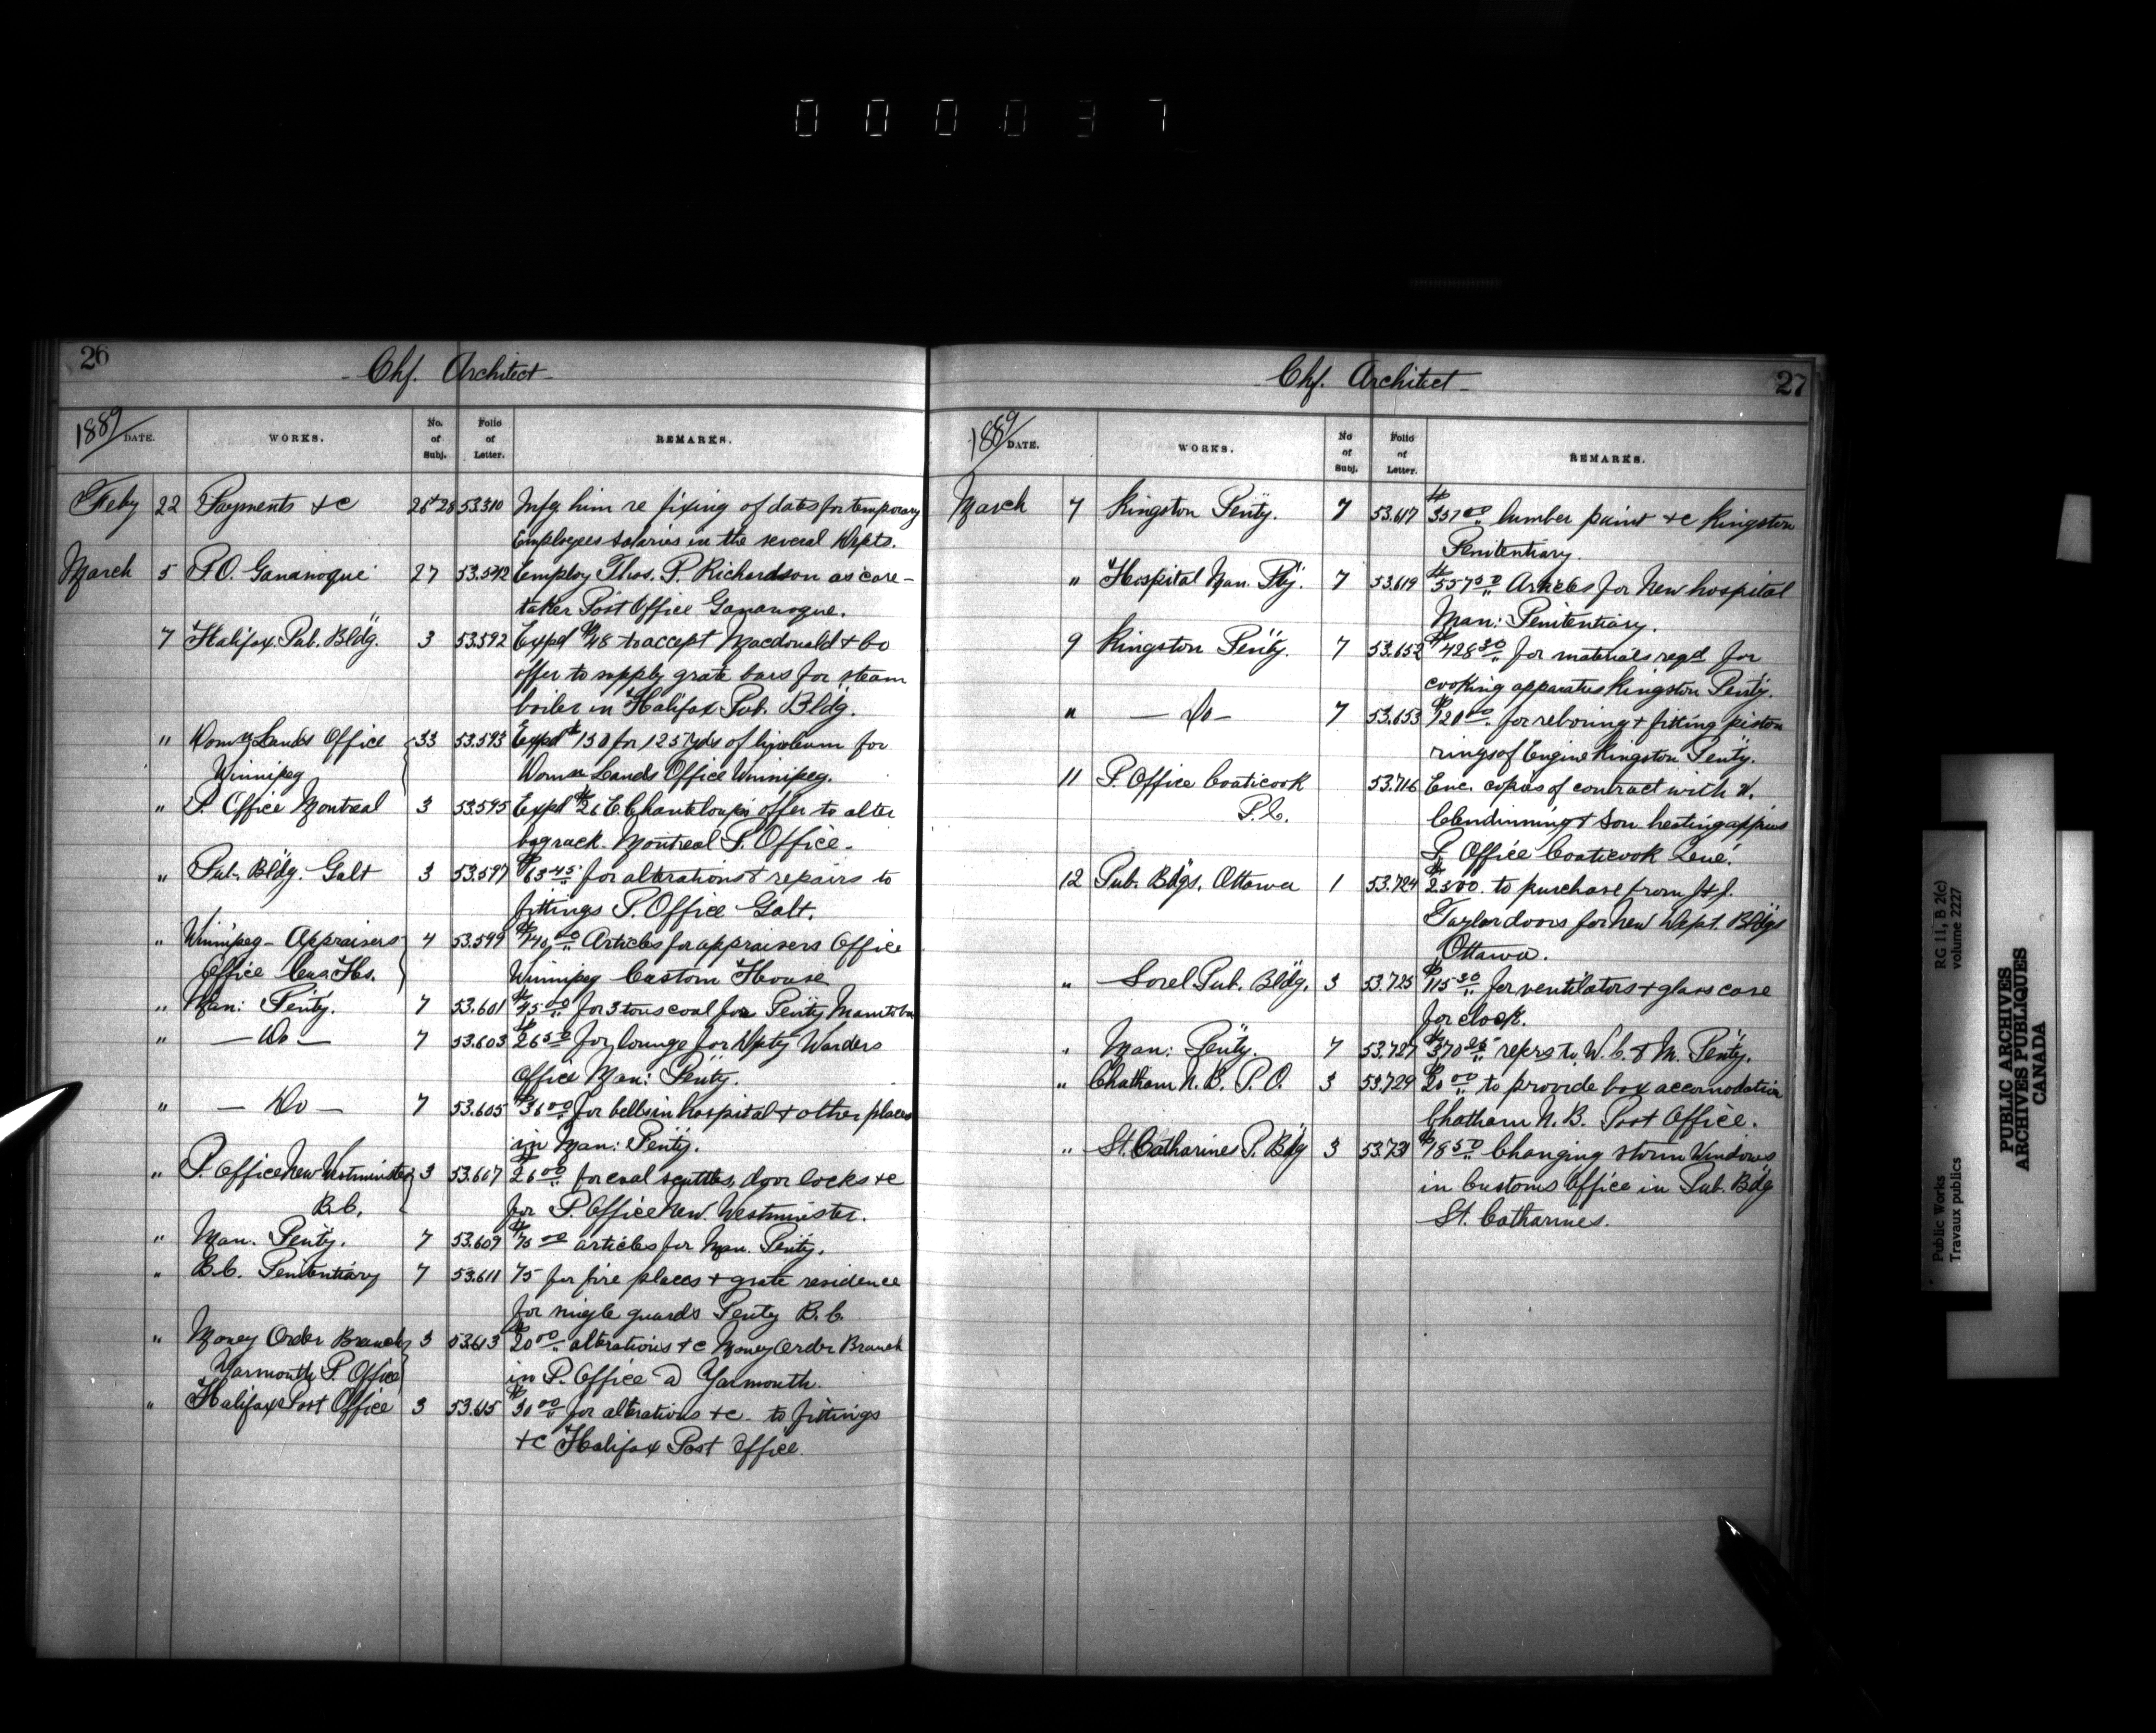 000037
26
Chf. Architect
1889 DATE. WORKS. No. of Subj. Folio of Letter. REMARKS.
Feby 22 Payments &c 26+28 53.310 Infg him re fixing of dates for temporary
Employees salaries in the several Depts.
March 5 P.O. Gananoque 27 53.542 Employ Thos. P. Richardson as care-
taker Post Office Gananoque.
7 Halifax Pub. Bldg. 3 53.592 Expd $48 to accept Macdonald & Co
offer to supply grate bars for steam
boiler in Halifax Pub. Bldg.
" Domn Lands Office 33 53.593 Expd $150 for 125 yds of linoleum for
Winnipeg Domn Lands Office Winnipeg.
" P. Office Montreal 3 53.595 Expd $26 E. Chanteloup's offer to alter
bag rack. Montreal P. Office.
" Pub. Bldg. Galt 3 53.597 $63 45 for alterations & repairs to
fittings P. Office Galt.
" Winnipeg - Appraisers 4 53.599 $140,00 Articles for appraisers Office
Office Cus. Hs. Winnipeg Custom House
" Man: Penty. 7 53.601 $45 00 for 3 tons coal for Penty Manitoba
" — Do — 7 53.603 $26 50 for lounge for Dpty Warders
Office Man: Penty.
" — Do — 7 53.605 $36 00 for bells in hospital & other places
in Man: Penty.
" P. Office New Westminster 3 53.607 $26 00 for coal scuttles, door locks &c
B.C. for P. Office New Westminster.
" Man. Penty. 7 53.609 $75 00 articles for Man. Penty.
" B.C. Penitentiary 7 53.611 75 for fire places & grate residence
for single guards Penty B.C.
" Money Order Branch 3 53.613 $20 00 alterations &c Money Order Branch
Yarmouth P. Office in P. Office a Yarmouth.
" Halifax Post Office 3 53.615 $30 00 for alterations &c to fittings
&c Halifax Post Office.
27
Chf. Architect
1889 DATE. WORKS. No of Subj. Folio of Letter. REMARKS.
March 7 Kingston Penty. 7 53.617 $357 00 lumber paint &c Kingston
Penitentiary.
" Hospital Man. Pty. 7 53.619 $557 50 Articles for New hospital
Man: Penitentiary.
9 Kingston Penty. 7 53.652 $428 30 for materials reqd for
cooking apparatus Kingston Penty.
" — Do — 7 53.653 $120 00 for reboring & fitting piston
rings of Engine Kingston Penty.
11 P. Office Coaticook 53.716 Enc. copies of contract with W.
P.Q. Clendinning & Son heating
P. Office Coaticook Que.
12 Pub. Bdgs. Ottawa 1 53.724 $2300. to purchase from J & J.
Taylor doors for New Dept. Bldgs
Ottawa.
" Sorel Pub. Bldg. 3 53.725 $115 30 for ventilators & glass case
for clock.
" Man: Penty. 7 53.727 $370 reprs to W.C. & M. Penty.
" Chatham N.B. P.O. 3 53.729 $20 00 to provide box accomodation
Chatham N.B. Post Office.
" St. Catharines P. Bdg 3 53.731 $18 50 Changing storm Windows
in Customs Office in Pub. Bdg
St. Catharines.
Public Works
Travaux publics
RG 11, B 2(c)
volume 2227
PUBLIC ARCHIVES
ARCHIVES PUBLIQUES
CANADA